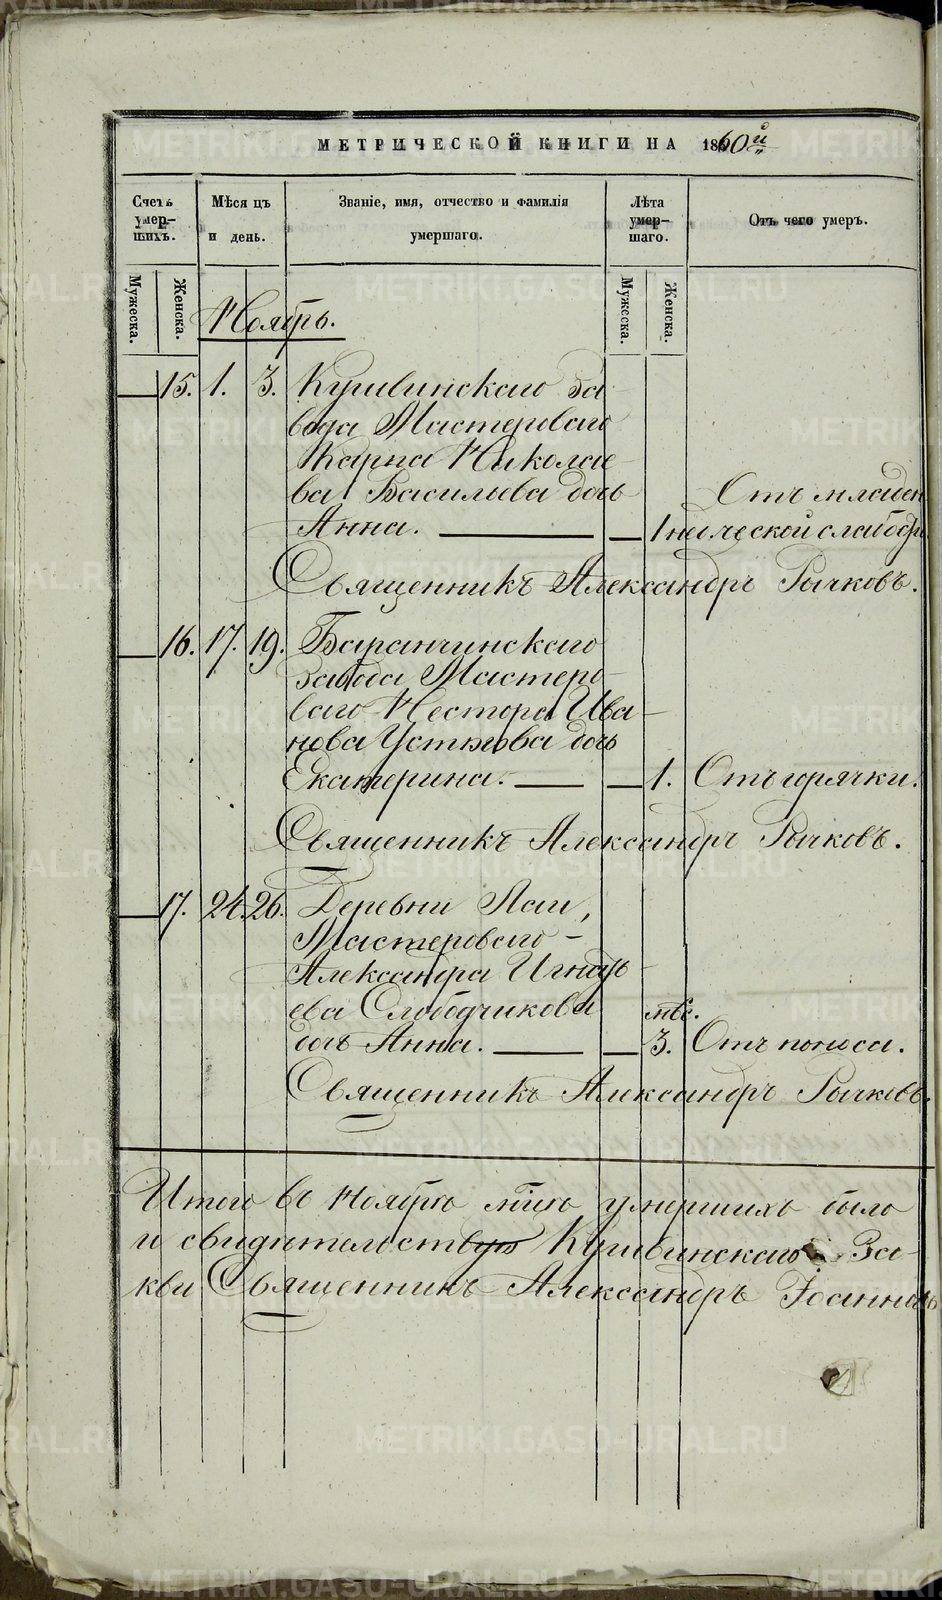 МЕТРИЧЕСКОЙ КНИГИ НА 1860й
Счетъ умер-шихъ.
Мѣсяцъ и день.
Званіе, имя, отчество и фамилія умершаго.
Лѣта умер-шаго.
Отъ чего умеръ.
Мужеска.
Женска.
Мужеска.
Женска.
Ноябрь.
— 15. 1. 3. Кушвинскаго за-
вода Мастероваго
Карпа Николае-
ва Васильева дочь Отъ младен
Анна. — — 1 ческой слабо
Священникъ Александръ Рычковъ.
— 16. 17. 19. Баранчинскаго
завода Мастеро-
ваго Нестора Ива-
нова Устюгова дочь
Екатерина. — — 1. Отъ горячки.
Священникъ Александръ Рычковъ.
— 17. 24. 26. Деревни Лаи,
Мастероваго -
Александра Игнать-
ева Слободчикова мѣс.
дочь Анна. — — 3. Отъ поноса.
Священникъ Александръ Рычковъ.
Итого въ Ноябрѣ мцѣ умершихъ было
и свидѣтельствую Кушвинскаго За-
кви Священникъ Александръ Іоанновъ
METRIKI.GASO-URAL.RU